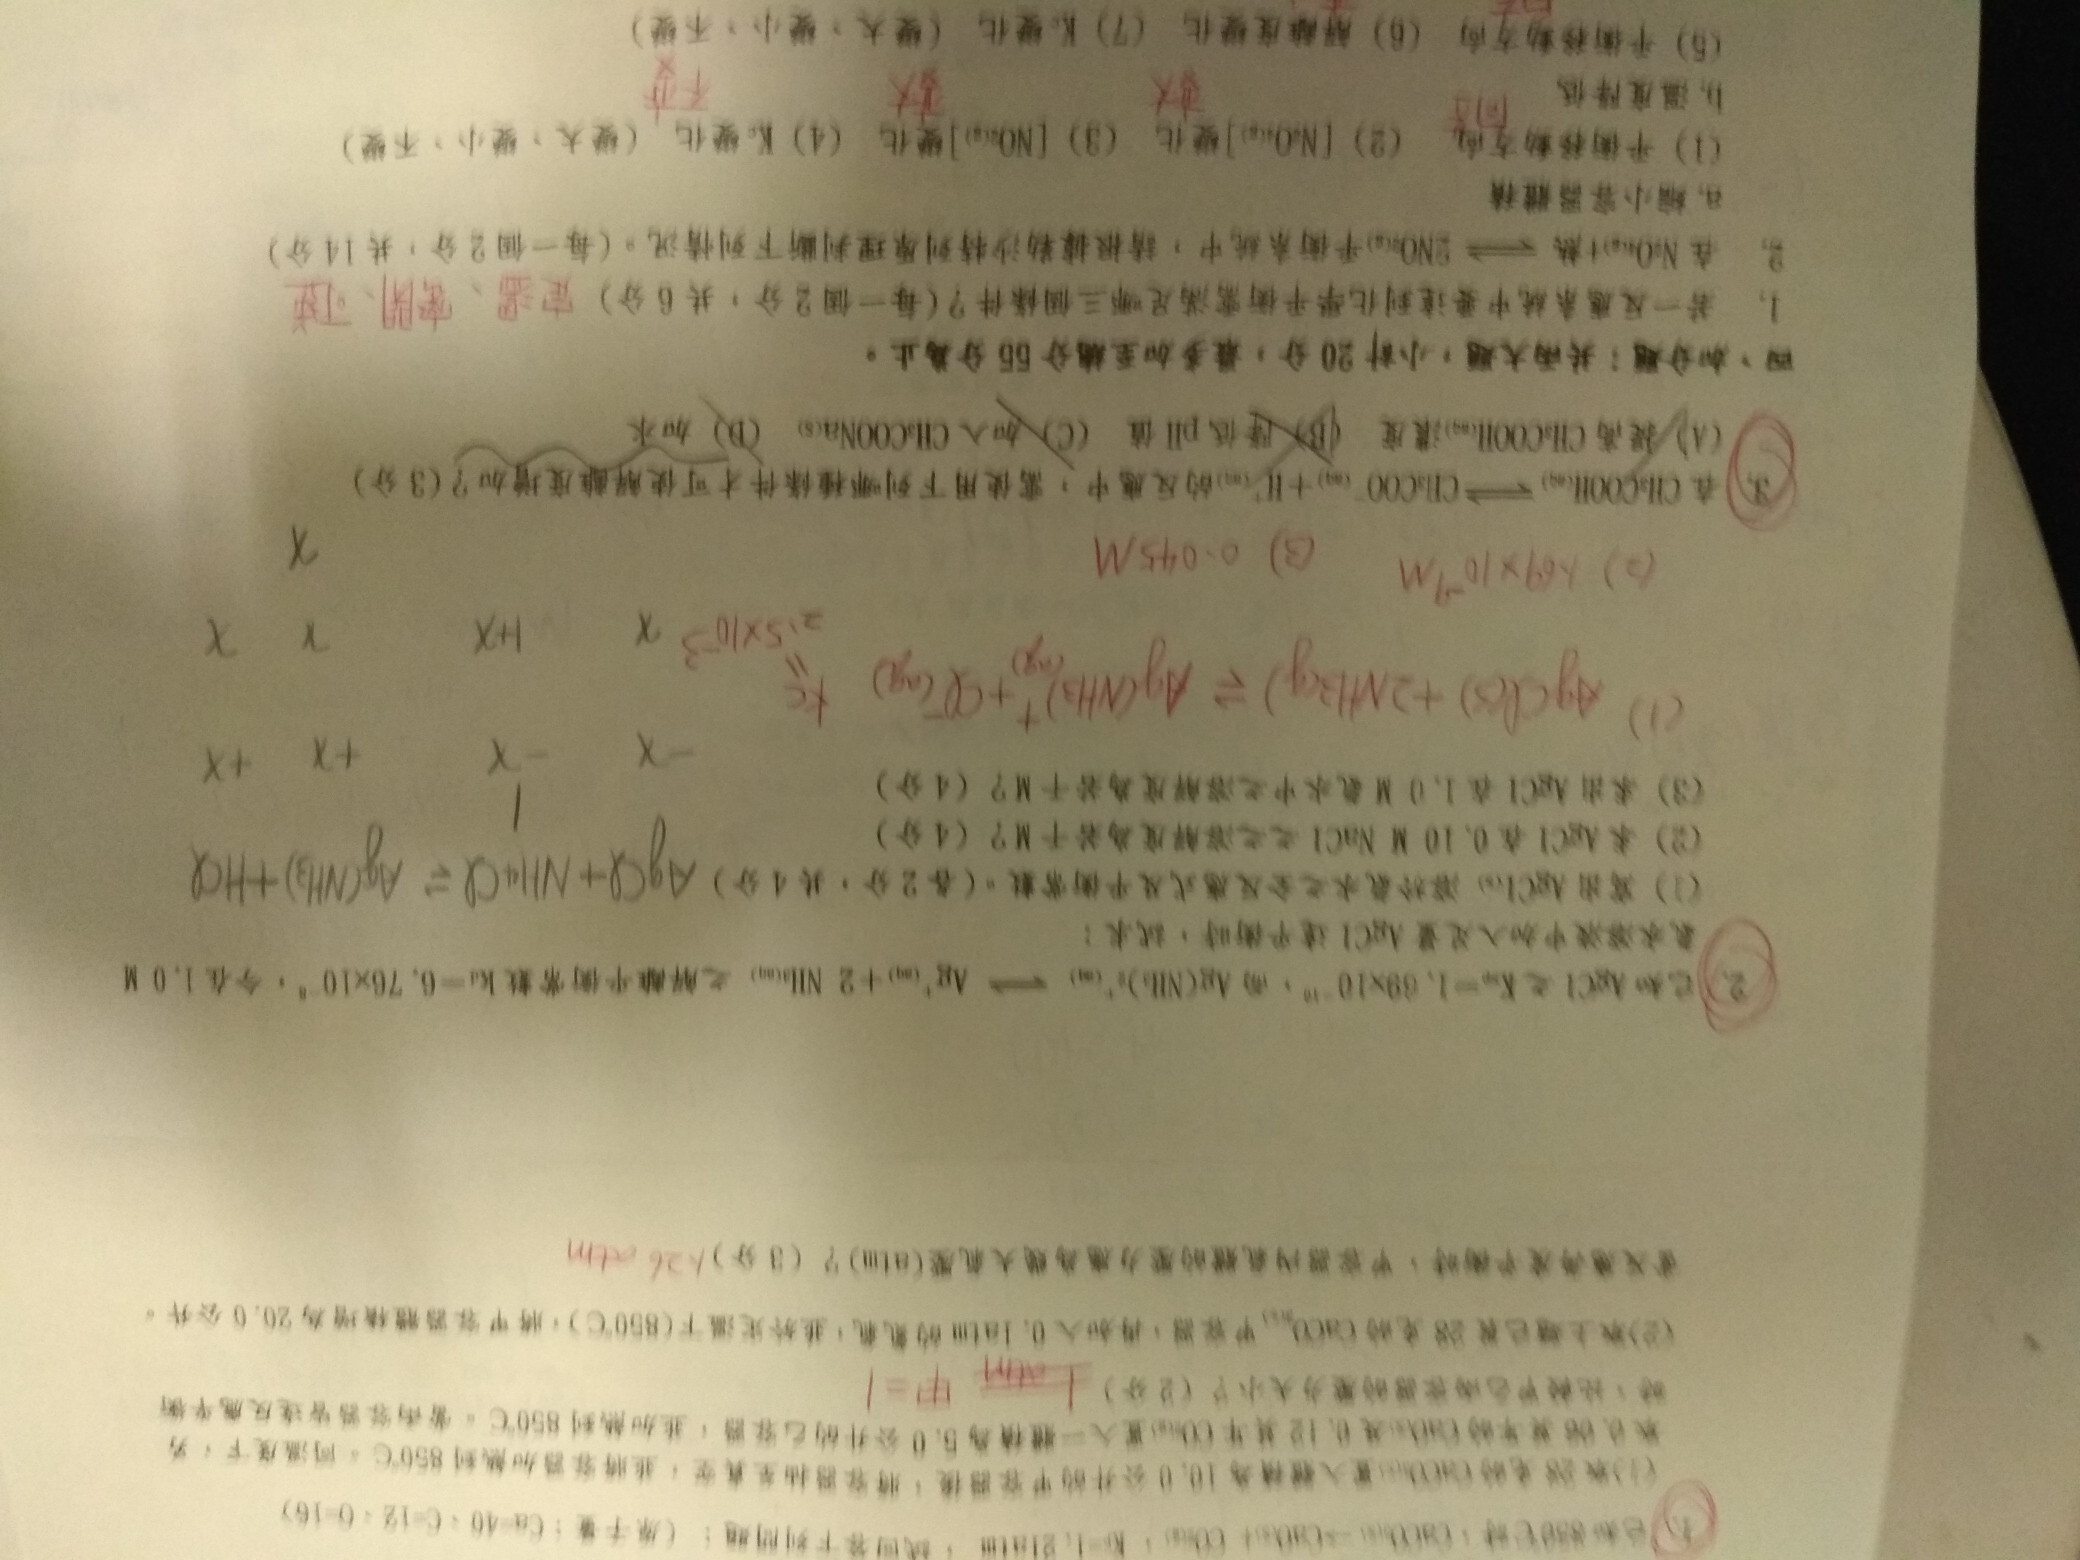 1. 已知850℃時，CaCO₃(s)→CaO(s)+CO₂(g)，Kp=1.21atm，試回答下列問題：（原子量：Ca=40、C=12、O=16）
(1)取28克的CaCO₃(s)置入體積為10.0公升的甲容器後，將容器抽至真空，並將容器加熱到850℃。同溫度下，另
取0.08莫耳的CaO(s)及0.12莫耳CO₂(g)置入一體積為5.0公升的乙容器，並加熱到850℃。當兩容器皆達反應平衡
時，比較甲乙兩容器的壓力大小？（2分） 1 atm 甲=1
(2)取上題已裝28克的CaCO₃(s)甲容器，再加入0.1atm的氦氣，並於定溫下(850℃)，將甲容器體積增為20.0公升。
當反應再度平衡時，甲容器內氣體的壓力應為幾大氣壓(atm)？（3分） 1.26 atm
2. 已知AgCl之Ksp=1.69x10⁻¹⁰，而Ag(NH₃)₂⁺(aq) ⇌ Ag⁺(aq)+2 NH₃(aq)之解離平衡常數kd=6.76x10⁻⁸，今在1.0 M
氨水溶液中加入足量AgCl達平衡時，試求：
(1) 寫出AgCl(s) 溶於氨水之全反應式及平衡常數。（各2分，共4分） AgCl+NH4Cl ⇌ Ag(NH3)+HCl
(2) 求AgCl在0.10 M NaCl之之溶解度為若干M？（4分）
1
(3) 求出AgCl在1.0 M氨水中之溶解度為若干M？（4分）
-x -x +x +x
(1) AgCl(s)+2NH3(g) ⇌ Ag(NH3)⁺(aq)+Cl⁻(aq) kc = 2.5x10⁻³
x 1+x x x
(2) 1.69x10⁻⁹M (3) 0.045M
x
3. 在CH₃COOH(aq) ⇌ CH₃COO⁻(aq)+H⁺(aq)的反應中，需使用下列哪種條件才可使解離度增加？（3分）
(A) 提高CH₃COOH(aq)濃度 (B) 降低pH值 (C) 加入CH₃COONa(s) (D) 加水
四、加分題：共兩大題，小計20分，最多加至總分55分為止。
1. 若一反應系統中要達到化學平衡需滿足哪三個條件？（每一個2分，共6分） 定溫、密閉、可逆
2. 在N₂O₄(g)+熱 ⇌ 2NO₂(g)平衡系統中，請根據勒沙特列原理判斷下列情況。（每一個2分，共14分）
a. 縮小容器體積
(1) 平衡移動方向 (2) [N₂O₄(g)]變化 (3) [NO₂(g)]變化 (4) Kc變化 （變大、變小、不變）
向左 變大 變大 不變
b. 溫度降低
(5) 平衡移動方向 (6) 解離度變化 (7) Kc變化 （變大、變小、不變）